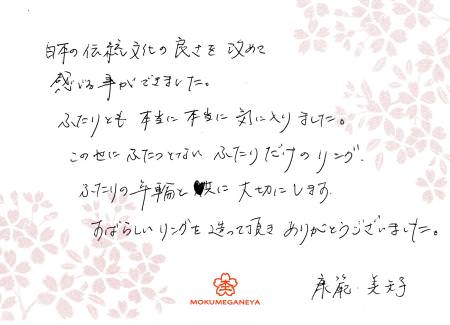 日本の伝統文化の良さを改めて
感じる事ができました。
ふたりとも本当に本当に気に入りました。
この世にふたつとない ふたりだけのリング.
ふたりの年輪と共に大切にします.
すばらしいリングを造って頂き ありがとうございました。
MOKUMEGANEYA